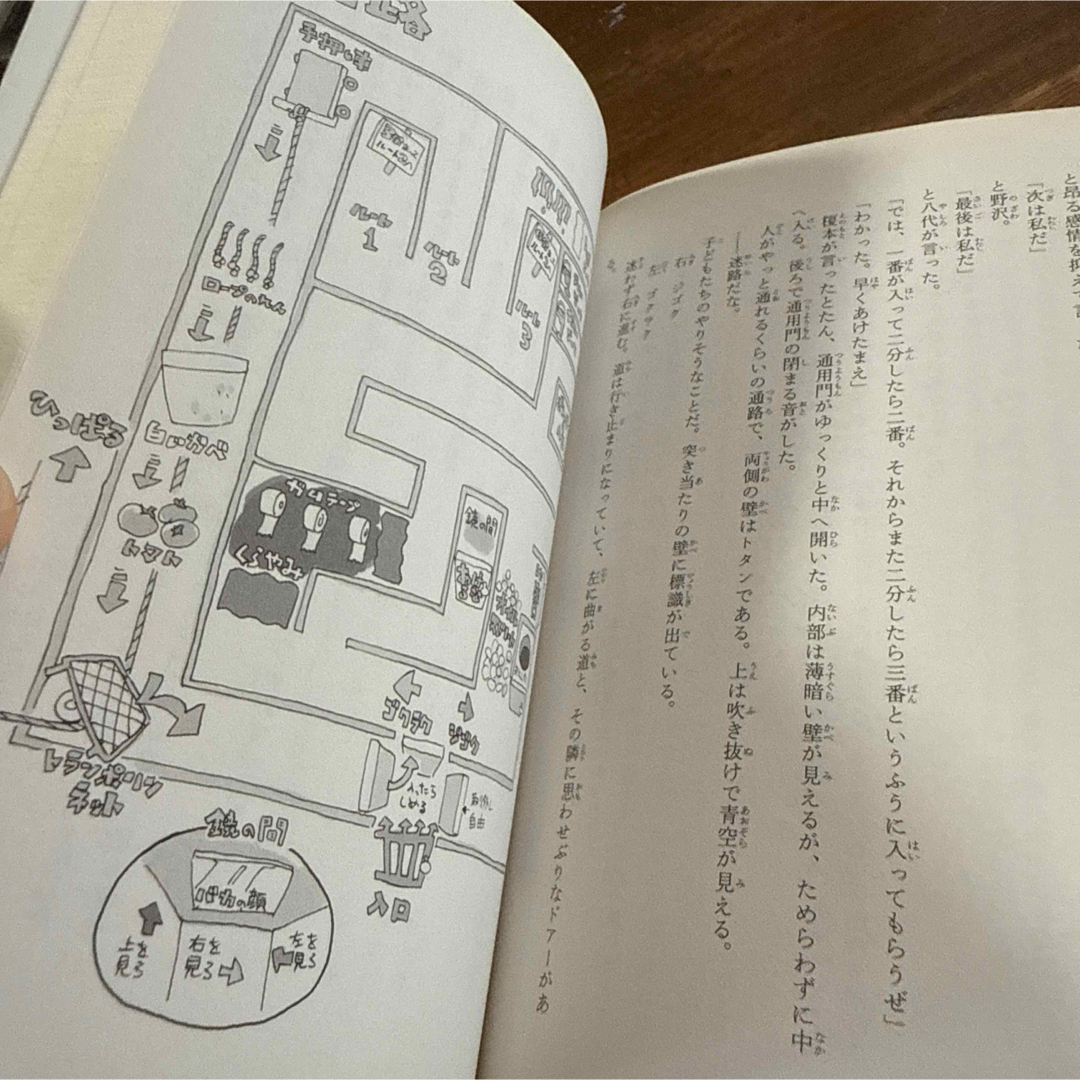 「次は私だ」
と野沢。
「最後は私だ」
と八代が言った。
「では、一番が入って二分したら二番。それからまた二分したら三番というふうに入ってもらうぜ」
「わかった。早くあけたまえ」
榎本が言ったとたん、通用門がゆっくりと中へ開いた。内部は薄暗い壁が見えるが、ためらわずに中
へ入る。後ろで通用門の閉まる音がした。
人がやっと通れるくらいの通路で、両側の壁はトタンである。上は吹き抜けで青空が見える。
——迷路だな。
子どもたちのやりそうなことだ。突き当たりの壁に標識が出ている。
右 ジゴク
左 ゴクラク
迷わず右に進む。道は行き止まりになっていて、左に曲がる道と、その隣に思わせぶりなドアーがあ
る。
手押し車
ルート
1
ルート
2
ルート
3
白いかべ
ひっぱる
トマト
トランポリン
ネット
ガムテープ
くらやみ
鏡の間
ゴクラク
ジゴク
入ったら
しめる
自由
入口
鏡の間
バカの顔
上を
見ろ
右を
見ろ
左を
見ろ